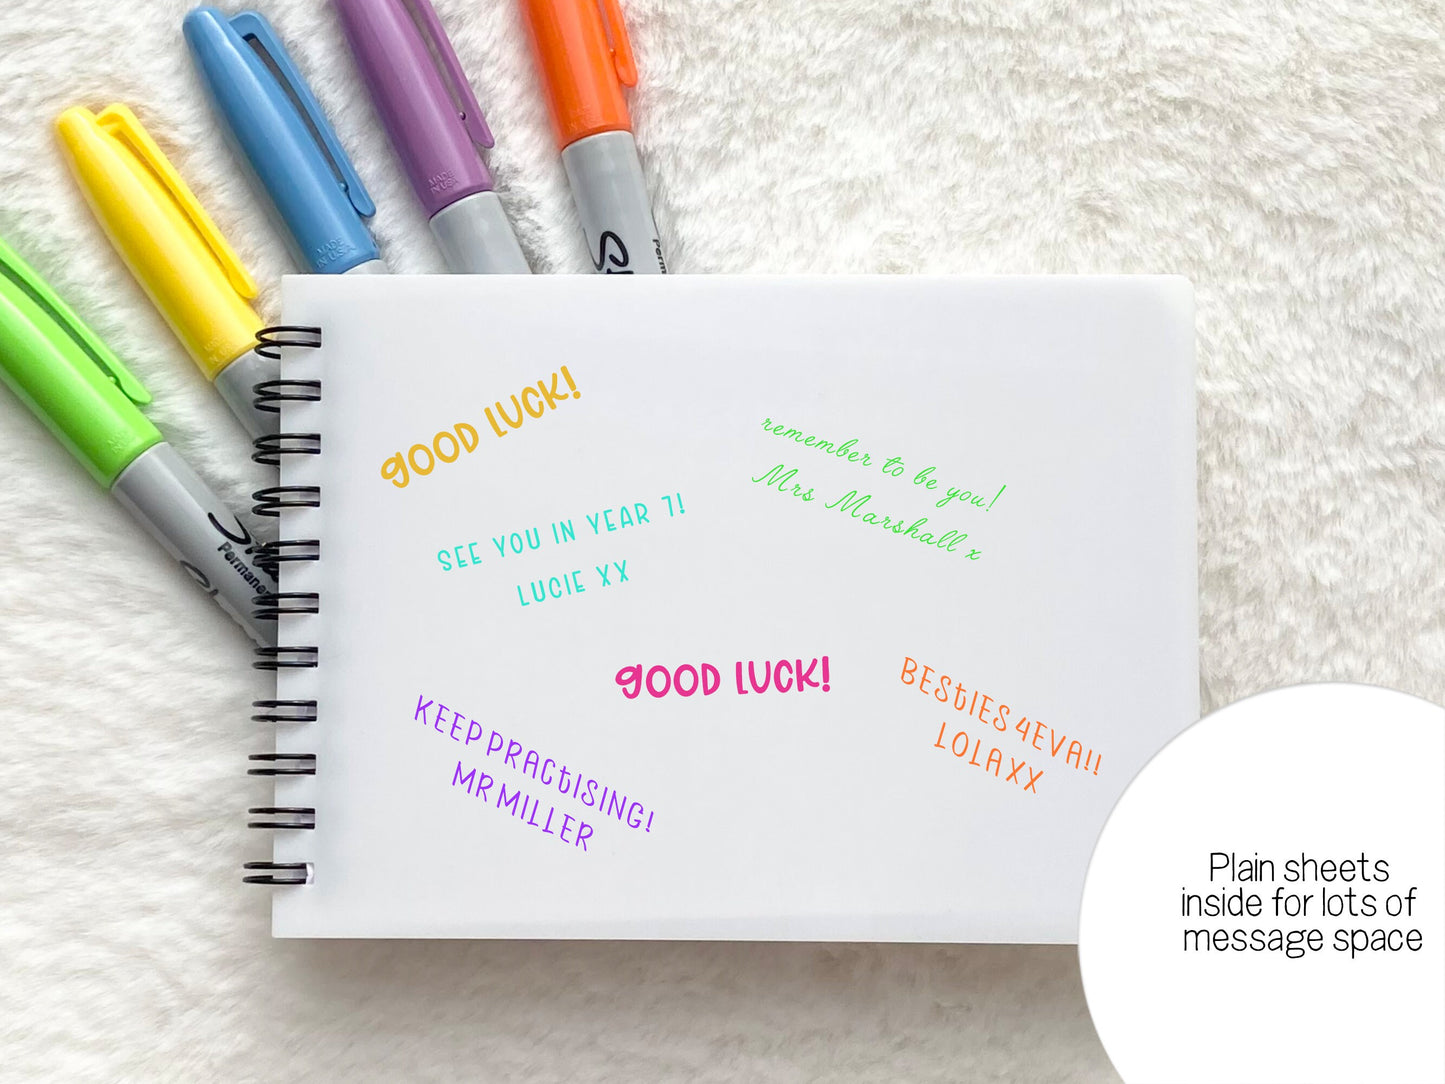 MADE
IN U.S.A
MADE
IN USA
Permanent
Perman
GOOD LUCK!
remember to be you!
Mrs Marshall x
SEE YOU IN YEAR 7!
LUCIE XX
GOOD LUCK!
BESTIES 4EVA!!
LOLA XX
KEEP PRACTISING!
MR MILLER
Plain sheets
inside for lots of
message space